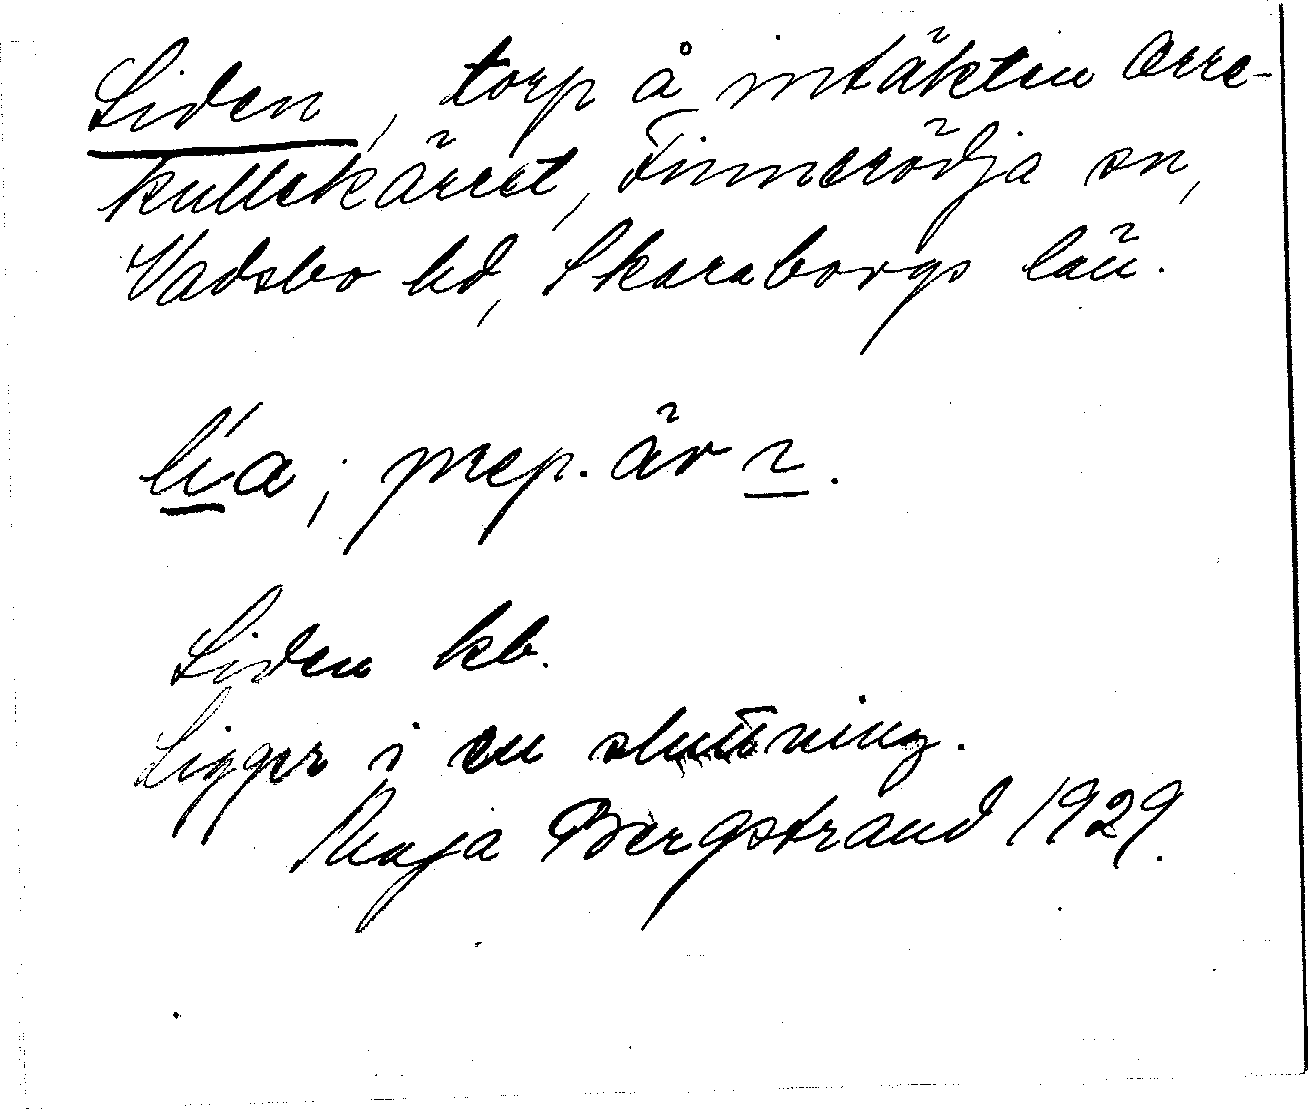 Liden, torp å intäkten Orre-
kullekärret, Finnerödja sn,
Vadsbo hd, Skaraborgs län.
lía; prep. är ɩ.
Liden kb.
Ligger i en sluttning.
Maja Bergstrand 1929.